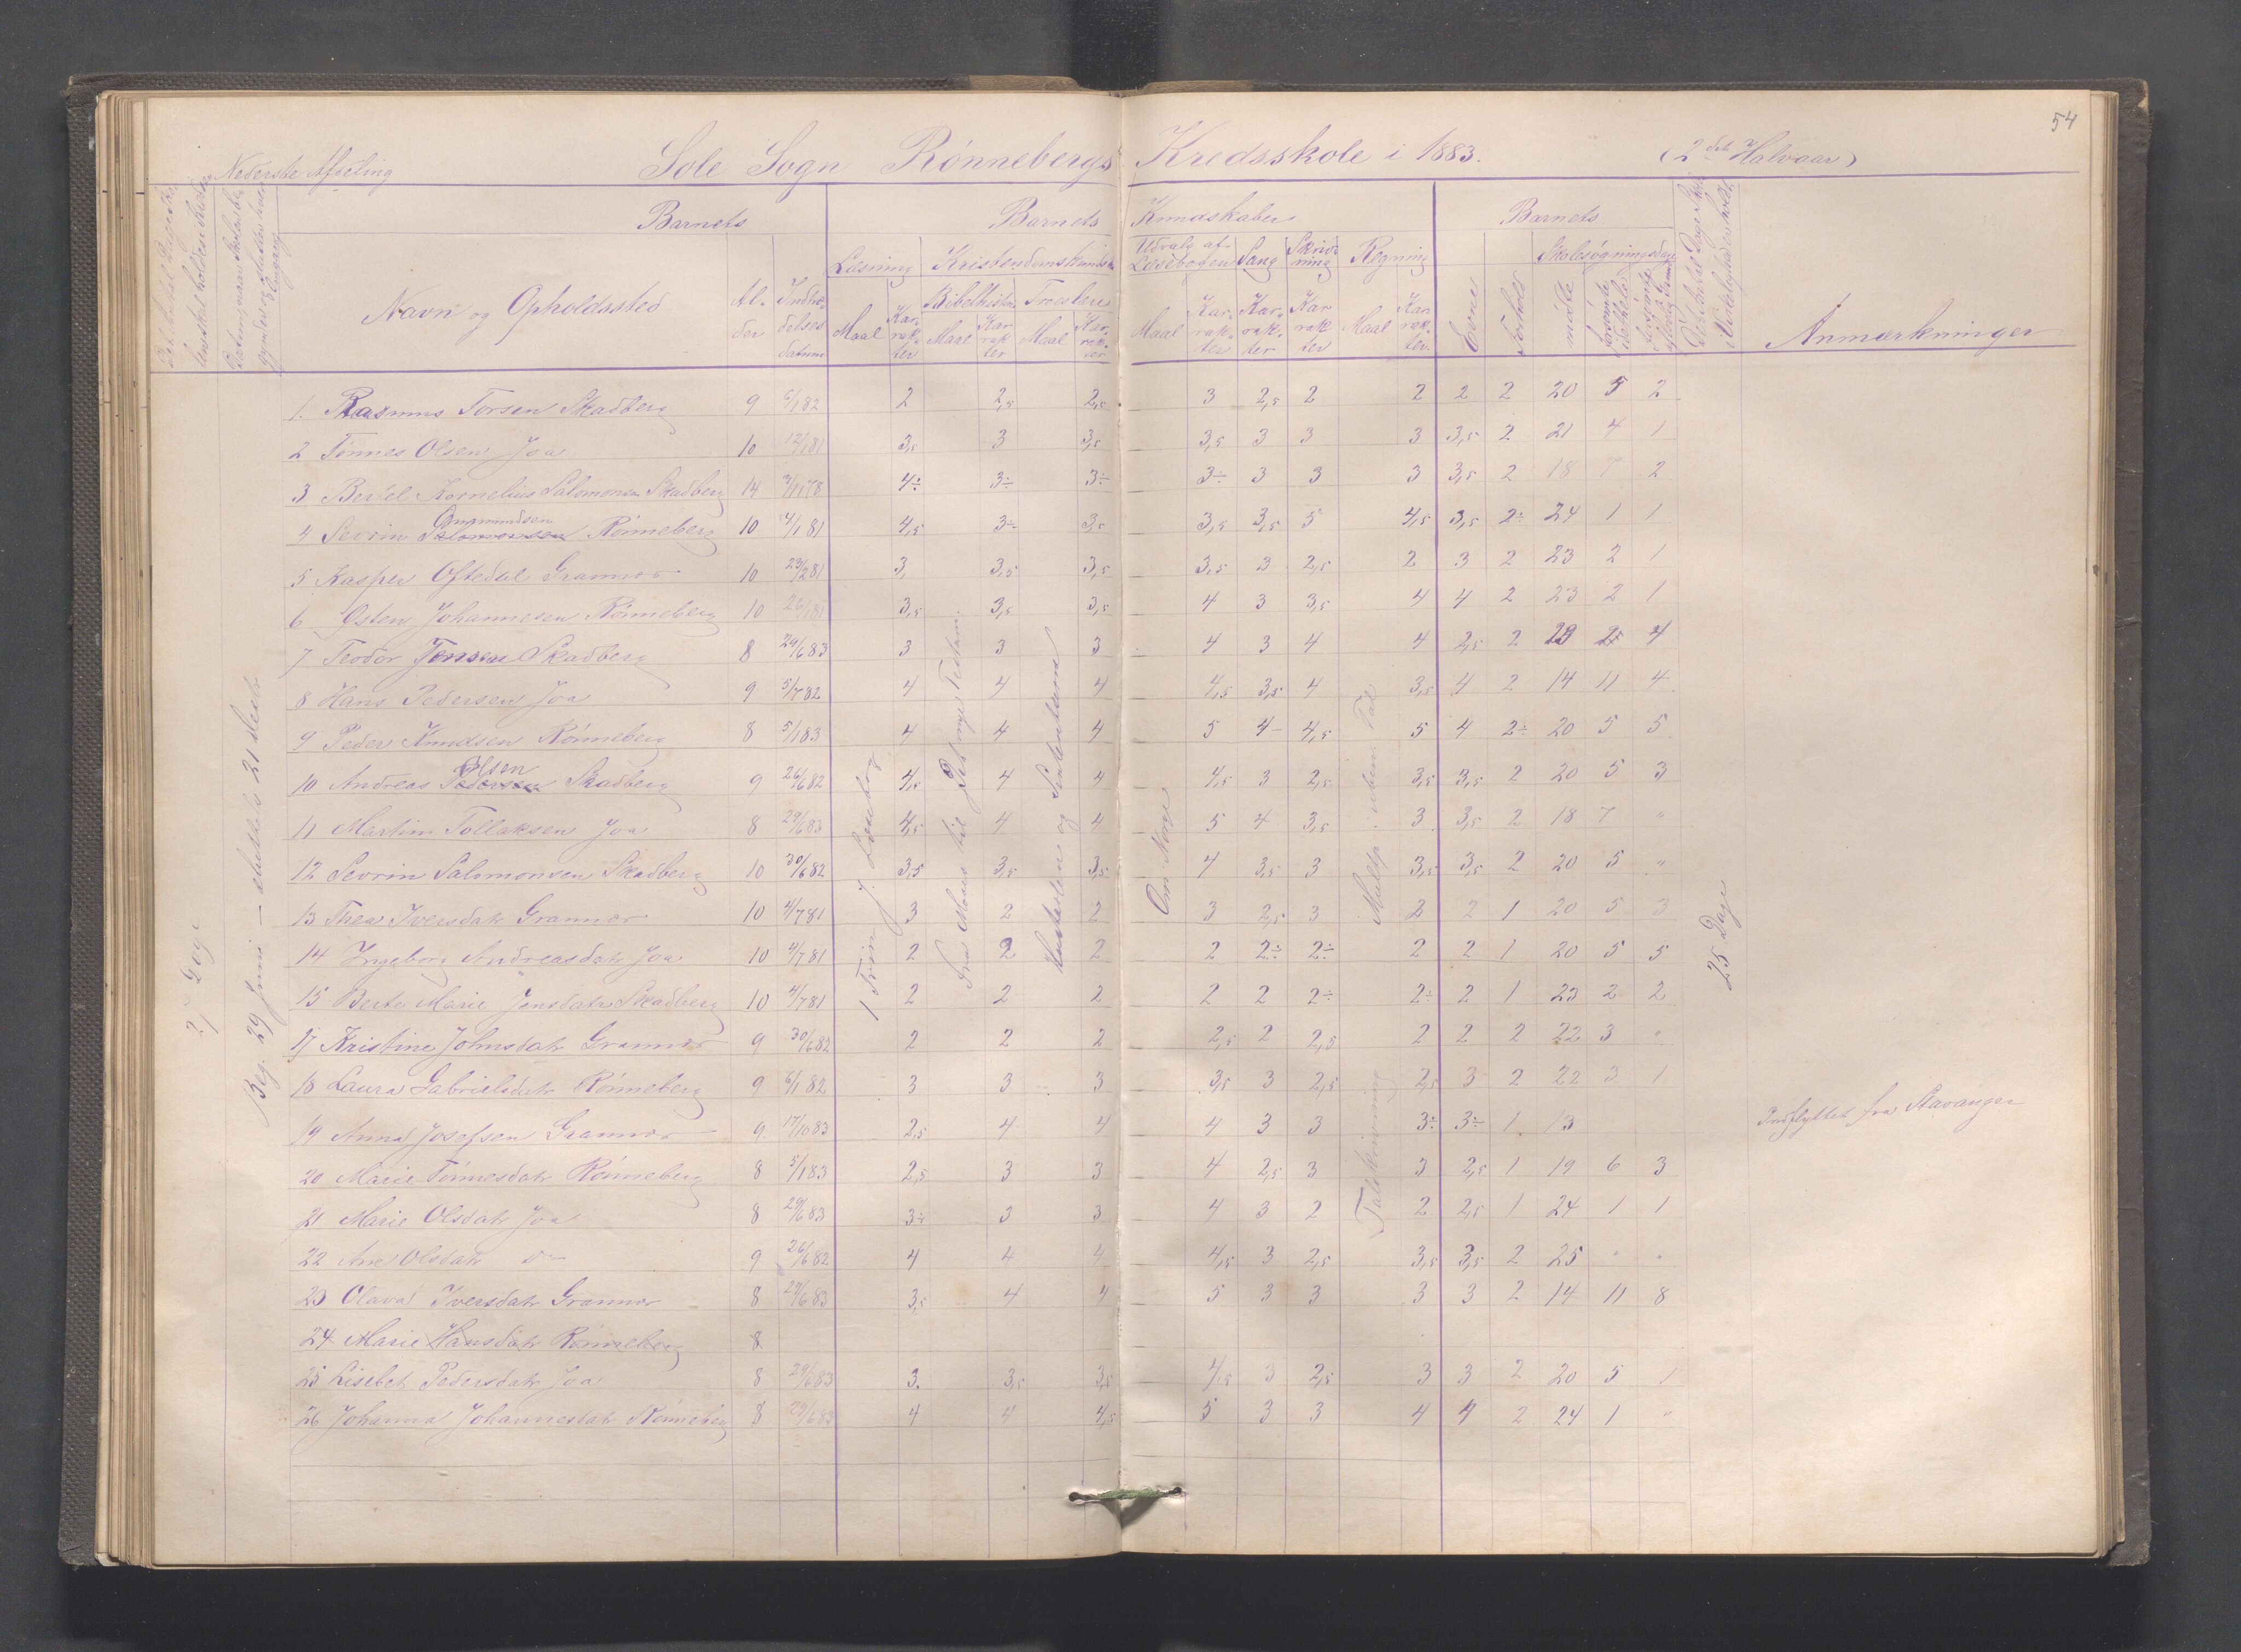 54
Nederste Afdeling Sole Sogn Rønnebergs Kredsskole i 1883. (2det Halvaar)
Barnets Barnets Kundskaber Barnets
Navn og Opholdssted Alder Indtrædelses datum Læsning Kristendomskundskab Udvalg af Læsebogen Sang Skrivning Regning Evne Forhold Skolesøgningsdage Anmærkninger
Maal Karrakter Bibelhistorie Troeslære Maal Karrakter Karrakter Karrakter Maal Karrakter mødte
Maal Karrakter Maal Karrakter
1. Rasmus Torsen Skadberg 9 6/1 82 2 2,5 2,5 3 2,5 2 2 2 2 20 5 2
2 Tønnes Olsen Joa 10 12/1 81 3,5 3 3,5 3,5 3 3 3 3,5 2 21 4 1
3 Berél Kornelius Salomonsen Skadberg 14 78 4÷ 3÷ 3÷ 3÷ 3 3 3 3,5 2 18 7 2
4 Sevrin Salomonsen Gummundsen Rønneberg 10 4/1 81 4,5 3÷ 3,5 3,5 3,5 5 4,5 3,5 2÷ 24 1 1
5 Kasper Oftedal Grannor 10 23/2 81 3, 3,5 3,5 3,5 3 2,5 2 3 2 23 2 1
6 Østen Johannesen Rønneberg 10 26/1 81 3,5 3,5 3,5 4 3 3,5 4 4 2 23 2 1
7 Teodor Jensen Skadberg 8 29/6 83 3 3 3 4 3 4 4 2,5 2 23 2 4
8 Hans Pedersen Joa 9 5/7 82 4 4 4 4,5 3,5 4 3,5 4 2 14 11 4
9 Peder Knudsen Rønneberg 8 5/1 83 4 4 4 5 4- 4,5 5 4 2÷ 20 5 5
10 Andreas Pedersen Olsen Skadberg 9 26/6 82 4,5 4 4 4,5 3 2,5 3,5 3,5 2 20 5 3
11 Martin Tollaksen Joa 8 29/6 83 4,5 4 4 5 4 3,5 3 3,5 2 18 7 "
12 Sevrin Salomonsen Skadberg 10 30/6 82 3,5 3,5 3,5 4 3,5 3 3,5 3,5 2 20 5 "
13 Thea Iversdatr Grannor 10 4/7 81 3 2 2 3 2,5 3 2 2 1 20 5 3
14 Ingeborg Andreasdatr Joa 10 4/7 81 2 2 2 2 2÷ 2÷ 2 2 1 20 5 5
15 Berta Marie Jensdatr Skadberg 10 4/7 81 2 2 2 2 2 2÷ 2÷ 2 1 23 2 2
17 Kristine Johnsdatr Grannor 9 30/6 82 2 2 2 2,5 2 2,5 2 2 2 22 3 "
18 Laura Gabrielsdatr Rønneberg 9 6/1 82 3 3 3 3,5 3 2,5 2,5 3 2 22 3 1
19 Anna Josefsen Grannor 9 17/10 83 2,5 4 4 4 3 3 3÷ 3÷ 1 13 Indflyttet fra Stavanger
20 Marie Tønnesdatr Rønneberg 8 5/1 83 2,5 3 3 4 2,5 3 3 2,5 1 19 6 3
21 Marie Olsdatr Joa 8 29/6 83 3÷ 3 3 4 3 2 2 2,5 1 24 1 1
22 Ane Olsdatr do 9 26/6 82 4 4 4 4,5 3 2,5 3,5 3,5 2 25 " "
23 Olava Iversdatr Grannor 8 29/6 83 3,5 4 4 5 3 3 3 3 2 14 11 8
24 Marie Hansdatr Rønneberg 8
25 Lisebet Pedersdatr Joa 8 29/6 83 3. 3,5 3,5 4,5 3 2,5 3 3 2 20 5 1
26 Johanna Johannesdatr Rønneberg 8 29/6 83 4 4 4,5 5 3 3 4 4 2 24 1 "
Beg. 29 Juni – sluttede 21 Decbr
1 Trin J. Læsebog
Fra Moses til Det nye Testam.
Husta og
Om Norge
Multip. uben. Tal
Talskrivning
25 Dage